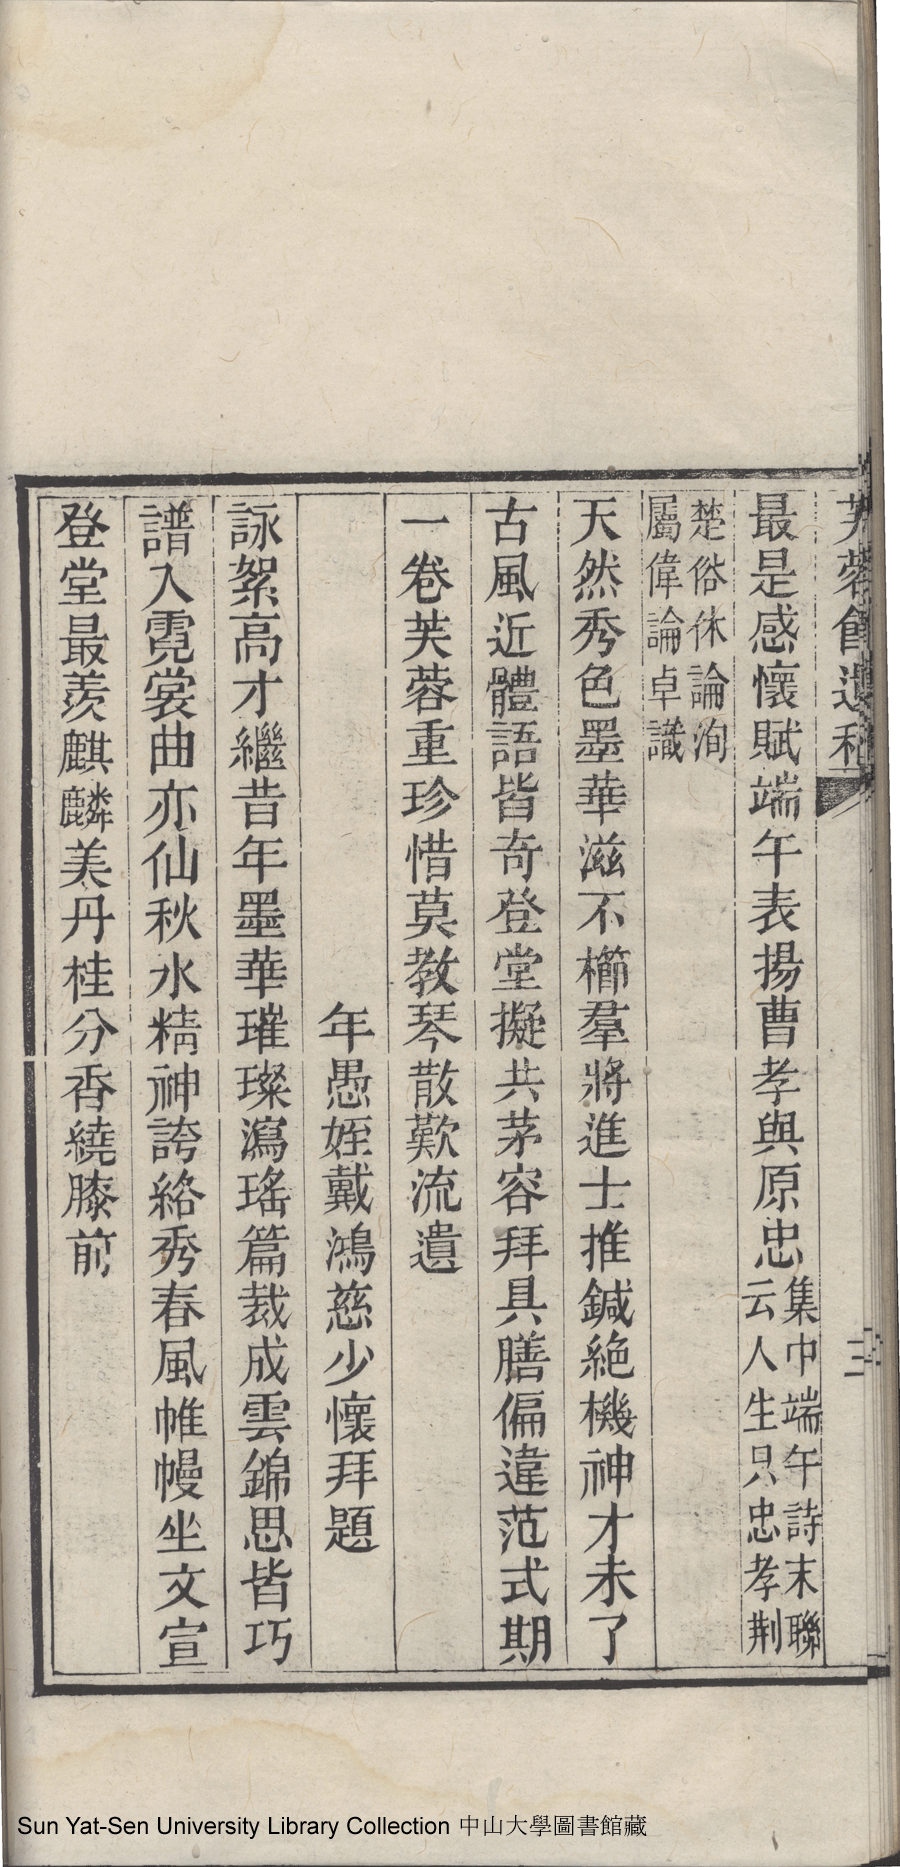 芙蓉館遺稿
最是感懷賦端午表揚曹孝與原忠集中端午詩末聯云人生只忠孝荆
楚俗休論洵屬偉論卓識
天然秀色墨華滋不櫛羣將進士推鍼絕機神才未了
古風近體語皆奇登堂擬共茅容拜具膳偏違范式期
一卷芙蓉重珍惜莫教琴散歎流遺
年愚姪戴鴻慈少懷拜題
詠絮高才繼昔年墨華璀璨瀉瑤篇裁成雲錦思皆巧
譜入霓裳曲亦仙秋水精神誇絡秀春風帷幔坐文宣
登堂最羨麒麟美丹桂分香繞膝前
Sun Yat-Sen University Library Collection 中山大學圖書館藏